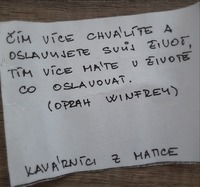 ČÍM VÍCE CHVÁLÍTE A
OSLAVUJETE SVŮJ ŽIVOT,
TÍM VÍCE MÁTE V ŽIVOTĚ
CO OSLAVOVAT.
(OPRAH WINFREY)
KAVÁRNÍCI Z MATICE